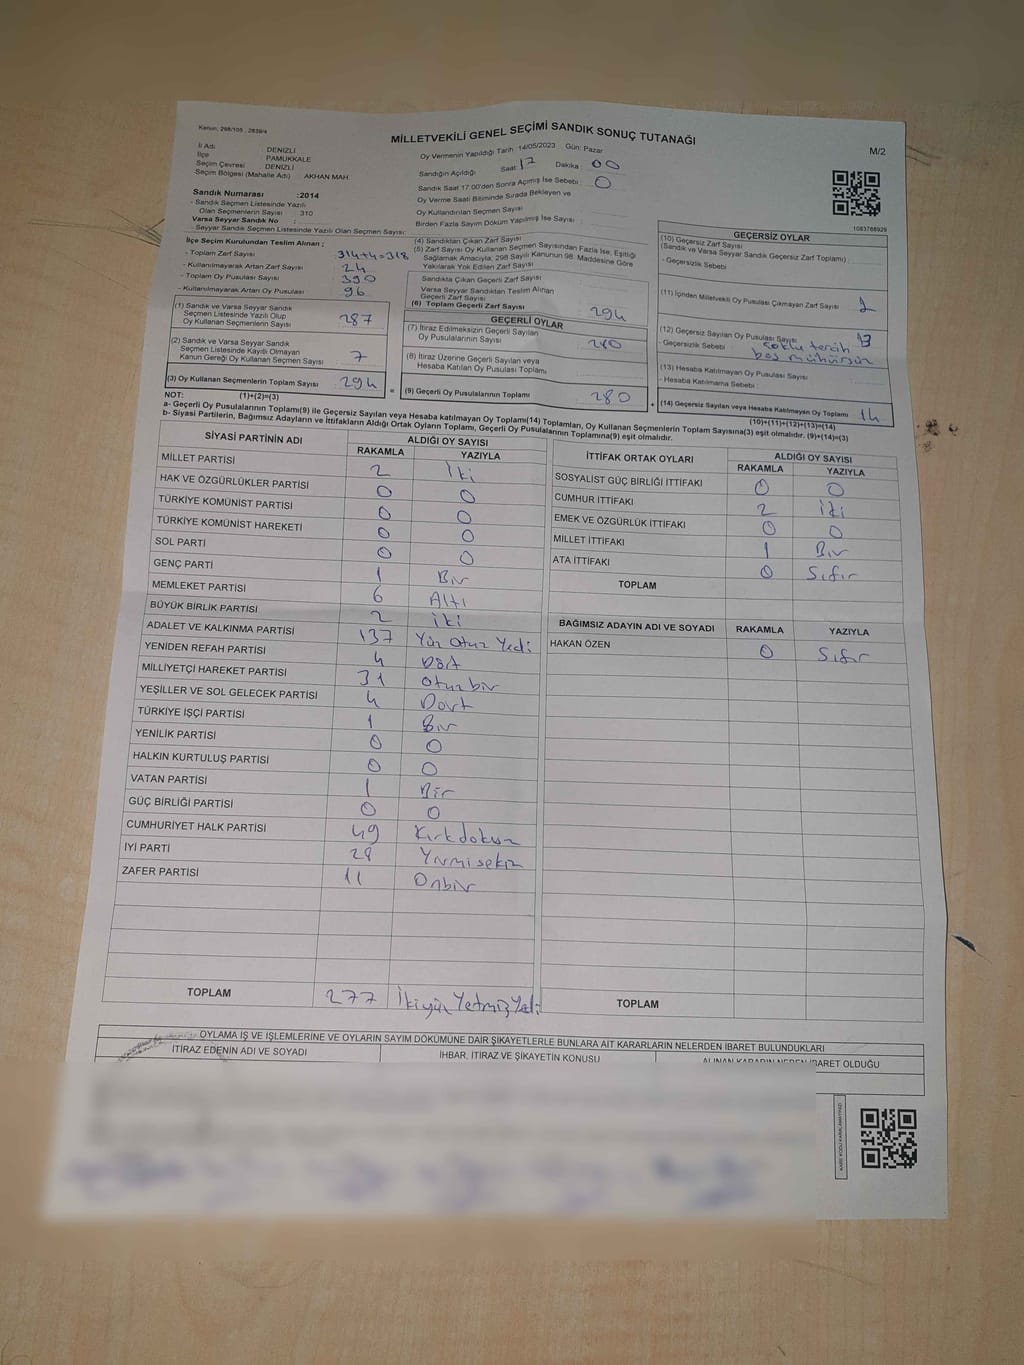 Kanun, 298/105 , 2839/4
MİLLETVEKİLİ GENEL SEÇİMİ SANDIK SONUÇ TUTANAĞI
M/2
İl Adı : DENİZLİ
İlçe : PAMUKKALE
Seçim Çevresi : DENİZLİ
Seçim Bölgesi (Mahalle Adı) : AKHAN MAH.
Sandık Numarası :2014
- Sandık Seçmen Listesinde Yazılı
Olan Seçmenlerin Sayısı : 310
Varsa Seyyar Sandık No :
Seyyar Sandık Seçmen Listesinde Yazılı Olan Seçmen Sayısı:
Oy Vermenin Yapıldığı Tarih : 14/05/2023 Gün: Pazar
Sandığın Açıldığı Saat 17 Dakika 00
Sandık Saat 17:00'den Sonra Açılmış İse Sebebi : 0
Oy Verme Saati Bitiminde Sırada Bekleyen ve
Oy Kullandırılan Seçmen Sayısı
Birden Fazla Sayım Döküm Yapılmış İse Sayısı :
1083788929
İlçe Seçim Kurulundan Teslim Alınan :
- Toplam Zarf Sayısı : 314+4=318
- Kullanılmayarak Artan Zarf Sayısı : 24
- Toplam Oy Pusulası Sayısı : 390
- Kullanılmayarak Artan Oy Pusulası : 96
(1) Sandık ve Varsa Seyyar Sandık
Seçmen Listesinde Yazılı Olup
Oy Kullanan Seçmenlerin Sayısı : 287
(2) Sandık ve Varsa Seyyar Sandık
Seçmen Listesinde Kayıtlı Olmayan
Kanun Gereği Oy Kullanan Seçmen Sayısı : 7
(3) Oy Kullanan Seçmenlerin Toplam Sayısı : 294
(1)+(2)=(3)
(4) Sandıktan Çıkan Zarf Sayısı
(5) Zarf Sayısı Oy Kullanan Seçmen Sayısından Fazla İse, Eşitliği
Sağlamak Amacıyla, 298 Sayılı Kanunun 98. Maddesine Göre
Yakılarak Yok Edilen Zarf Sayısı :
Sandıkta Çıkan Geçerli Zarf Sayısı :
Varsa Seyyar Sandıktan Teslim Alınan
Geçerli Zarf Sayısı :
(6) Toplam Geçerli Zarf Sayısı : 294
GEÇERLİ OYLAR
(7) İtiraz Edilmeksizin Geçerli Sayılan
Oy Pusulalarının Sayısı : 280
(8) İtiraz Üzerine Geçerli Sayılan veya
Hesaba Katılan Oy Pusulası Toplamı :
= (9) Geçerli Oy Pusulalarının Toplamı : 280
GEÇERSİZ OYLAR
(10) Geçersiz Zarf Sayısı
(Sandık ve Varsa Seyyar Sandık Geçersiz Zarf Toplamı) :
- Geçersizlik Sebebi :
(11) İçinden Milletvekili Oy Pusulası Çıkmayan Zarf Sayısı : 1
(12) Geçersiz Sayılan Oy Pusulası Sayısı : 13
- Geçersizlik Sebebi : çoklu tercih
boş mühürsüz
(13) Hesaba Katılmayan Oy Pusulası Sayısı :
- Hesaba Katılmama Sebebi :
+ (14) Geçersiz Sayılan veya Hesaba Katılmayan Oy Toplamı : 14
(10)+(11)+(12)+(13)=(14)
NOT:
a- Geçerli Oy Pusulalarının Toplamı(9) ile Geçersiz Sayılan veya Hesaba katılmayan Oy Toplamı(14) Toplamları, Oy Kullanan Seçmenlerin Toplam Sayısına(3) eşit olmalıdır. (9)+(14)=(3)
b- Siyasi Partilerin, Bağımsız Adayların ve İttifakların Aldığı Ortak Oyların Toplamı, Geçerli Oy Pusulalarının Toplamına(9) eşit olmalıdır.
SİYASİ PARTİNİN ADI ALDIĞI OY SAYISI
RAKAMLA YAZIYLA
MİLLET PARTİSİ 2 İki
HAK VE ÖZGÜRLÜKLER PARTİSİ 0 0
TÜRKİYE KOMÜNİST PARTİSİ 0 0
TÜRKİYE KOMÜNİST HAREKETİ 0 0
SOL PARTİ 0 0
GENÇ PARTİ 1 Bir
MEMLEKET PARTİSİ 6 Altı
BÜYÜK BİRLİK PARTİSİ 2 İki
ADALET VE KALKINMA PARTİSİ 137 Yüz Otuz Yedi
YENİDEN REFAH PARTİSİ 4 Dört
MİLLİYETÇİ HAREKET PARTİSİ 31 Otuzbir
YEŞİLLER VE SOL GELECEK PARTİSİ 4 Dört
TÜRKİYE İŞÇİ PARTİSİ 1 Bir
YENİLİK PARTİSİ 0 0
HALKIN KURTULUŞ PARTİSİ 0 0
VATAN PARTİSİ 1 Bir
GÜÇ BİRLİĞİ PARTİSİ 0 0
CUMHURİYET HALK PARTİSİ 49 Kırkdokuz
İYİ PARTİ 28 Yirmisekiz
ZAFER PARTİSİ 11 Onbir
TOPLAM 277 İkiyüz Yetmiş Yedi
İTTİFAK ORTAK OYLARI ALDIĞI OY SAYISI
RAKAMLA YAZIYLA
SOSYALİST GÜÇ BİRLİĞİ İTTİFAKI 0 0
CUMHUR İTTİFAKI 2 İki
EMEK VE ÖZGÜRLÜK İTTİFAKI 0 0
MİLLET İTTİFAKI 1 Bir
ATA İTTİFAKI 0 Sıfır
TOPLAM
BAĞIMSIZ ADAYIN ADI VE SOYADI RAKAMLA YAZIYLA
HAKAN ÖZEN 0 Sıfır
TOPLAM
OYLAMA İŞ VE İŞLEMLERİNE VE OYLARIN SAYIM DÖKÜMÜNE DAİR ŞİKAYETLERLE BUNLARA AİT KARARLARIN NELERDEN İBARET BULUNDUKLARI
İTİRAZ EDENİN ADI VE SOYADI İHBAR, İTİRAZ VE ŞİKAYETİN KONUSU ALINAN KARARIN NEDEN İBARET OLDUĞU